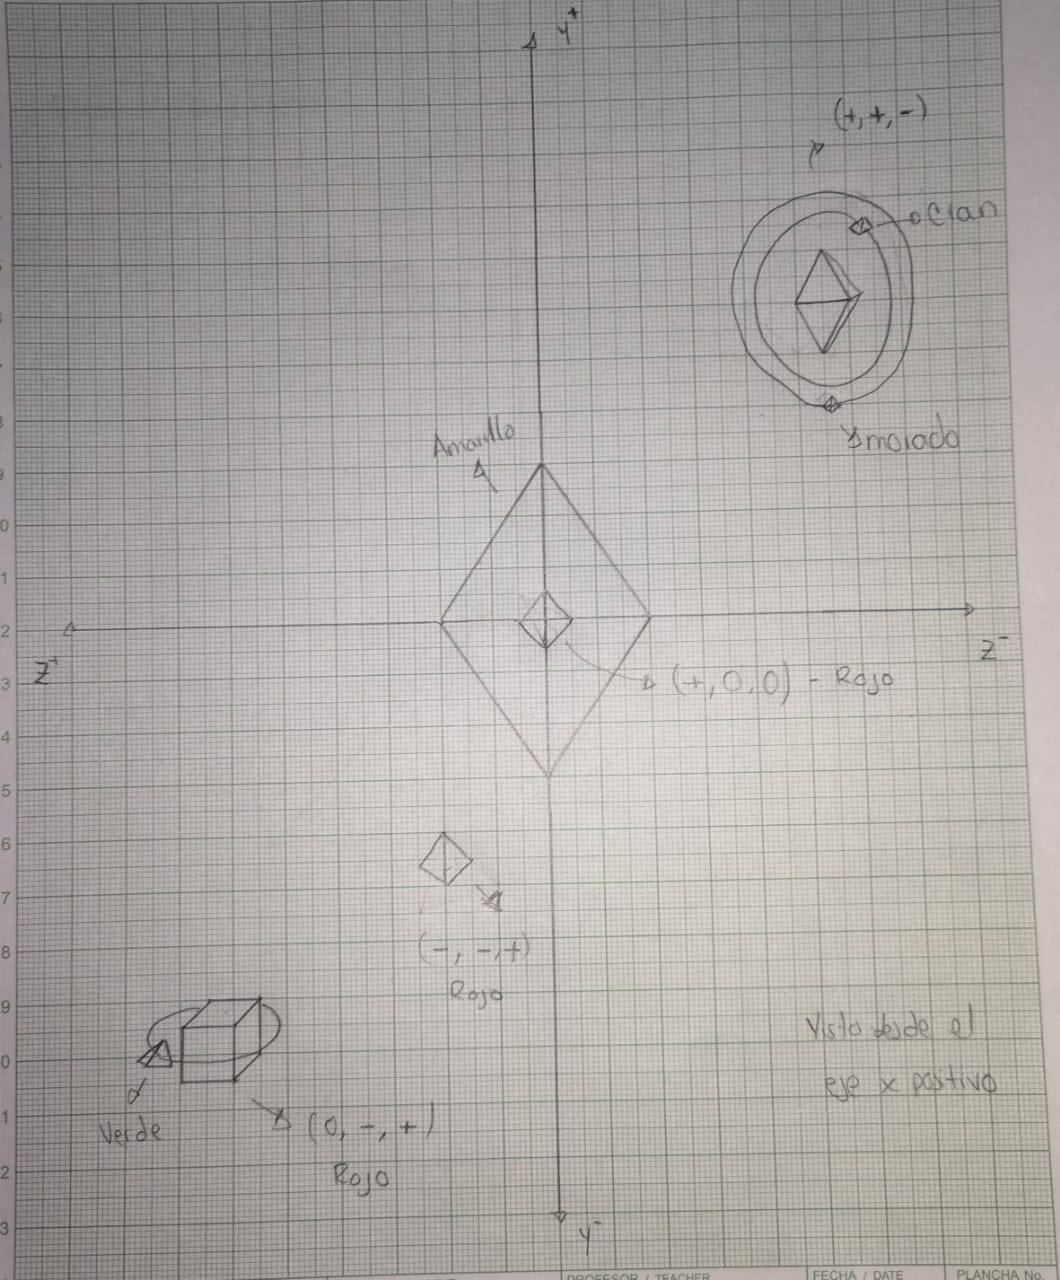 Y+
(+, +, -)
Cian
morado
Amarillo
Z+
Z-
(+, 0, 0) - Rojo
(-, -, +)
Rojo
Visto desde el
eje x positivo
Verde
(0, -, +)
Rojo
Y-
0
1
2
3
4
5
6
7
8
9
0
1
2
3
PROFESOR / TEACHER
FECHA / DATE
PLANCHA No.